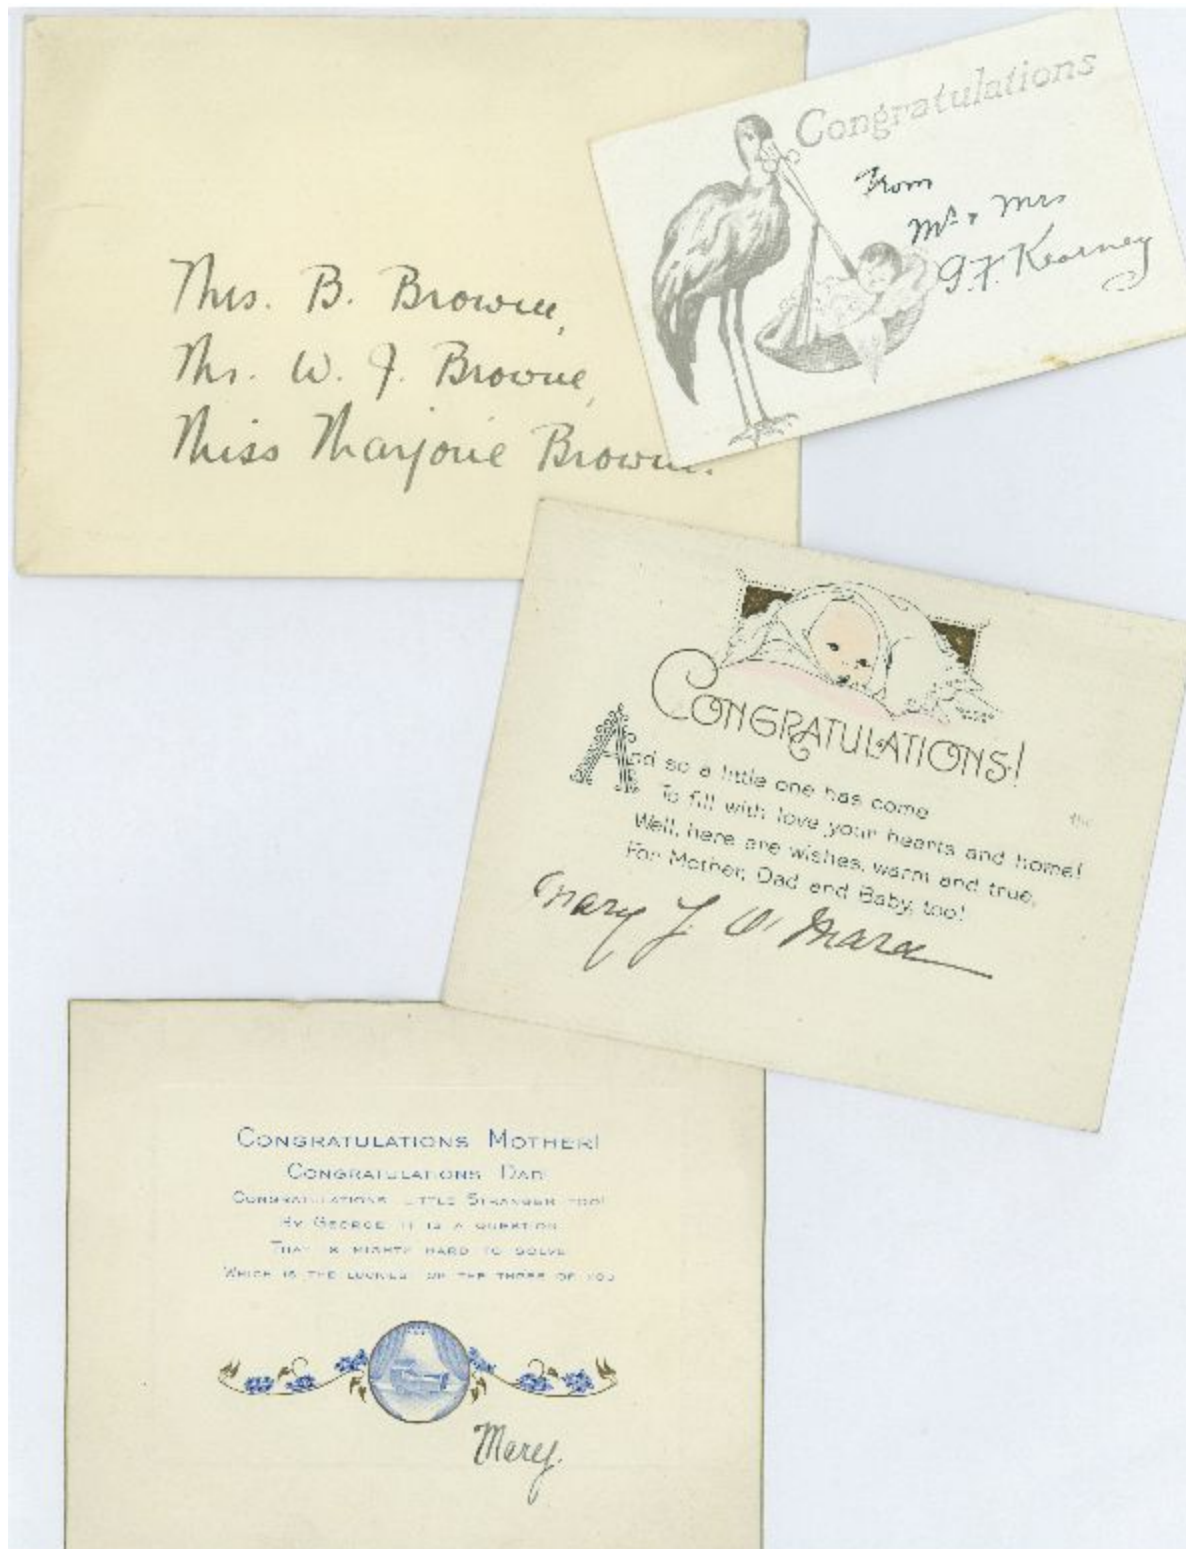 Mrs. B. Browne,
Mr. W. J. Browne,
Miss Marjorie Browne.
Congratulations
From
Mr & Mrs
G. F. Kearney
CONGRATULATIONS!
And so a little one has come
To fill with love your hearts and home!
Well, here are wishes, warm and true,
For Mother, Dad and Baby, too!
Mary J. O'Mara
CONGRATULATIONS MOTHER!
CONGRATULATIONS DAD!
CONGRATULATIONS LITTLE STRANGER TOO!
BY GEORGE IT IS A QUESTION
THAT IS MIGHTY HARD TO SOLVE
WHICH IS THE LUCKIEST OF THE THREE OF YOU
Mary.